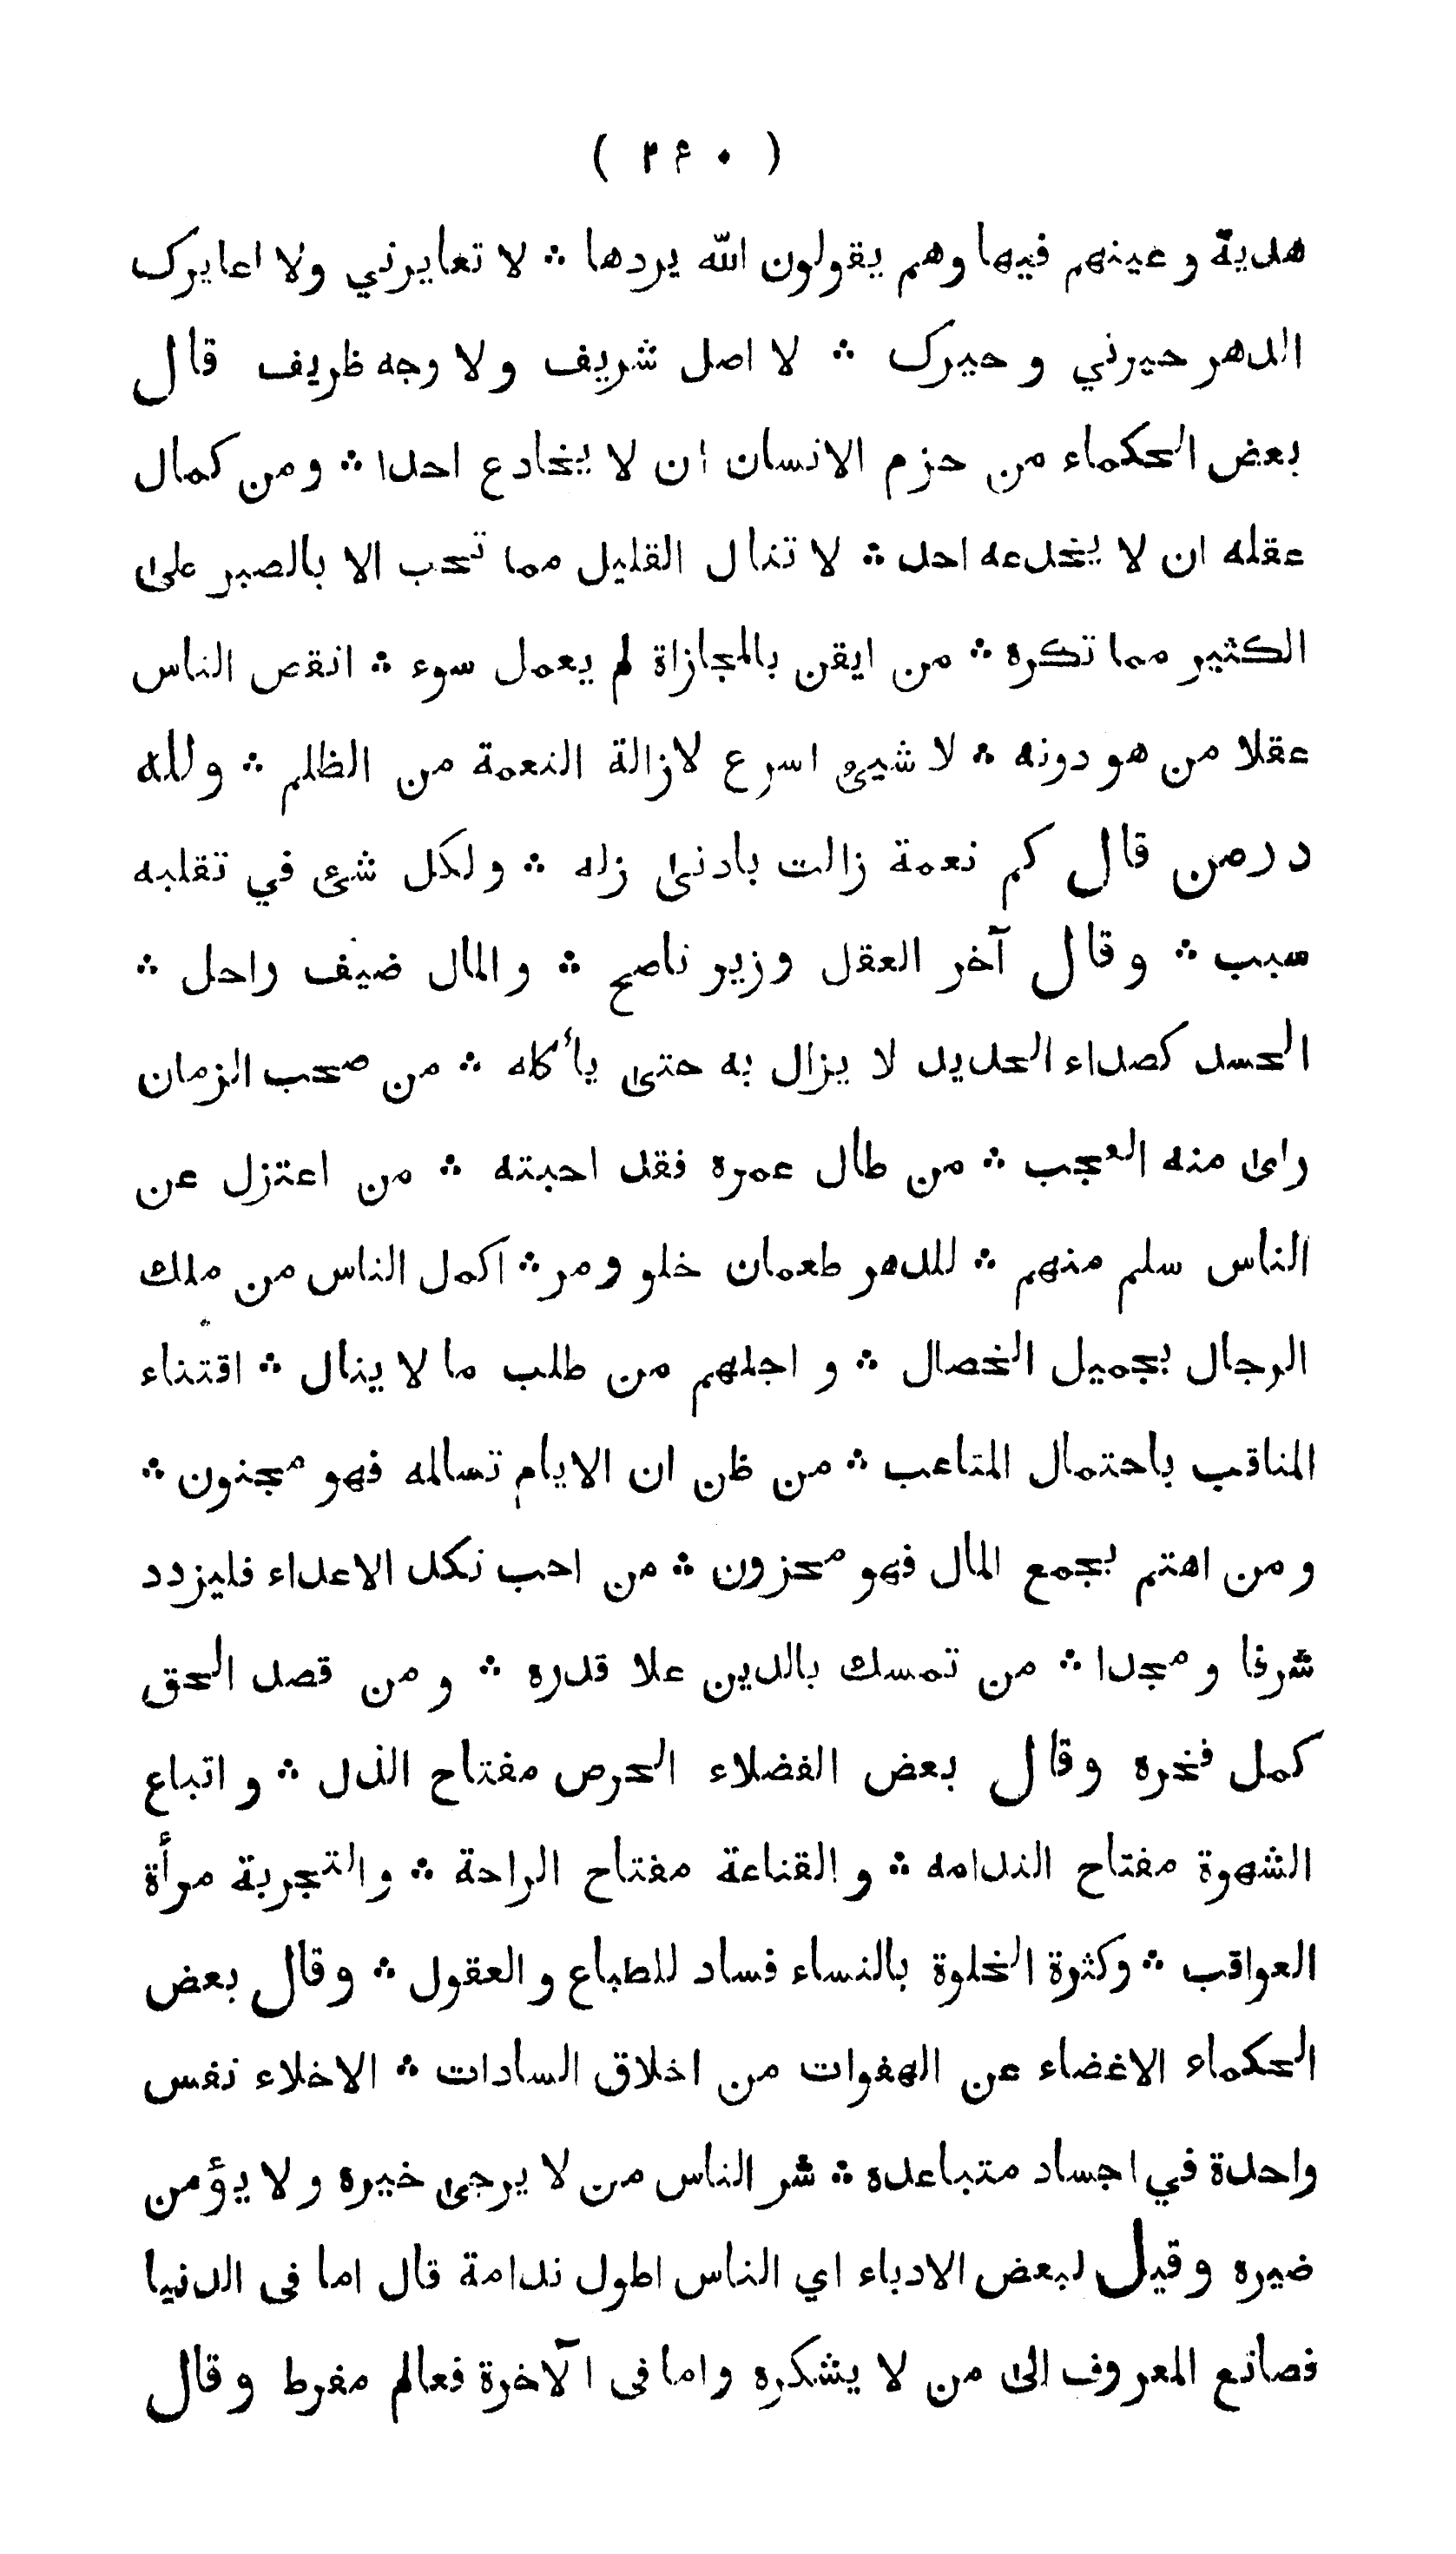 ( ۲۶۰ )
هدية وعينهم فيها وهم يقولون الله يردها ⁂ لا تعايرني ولا اعايرك
الدهر حيرني وحيرك ⁂ لا اصل شريف ولا وجه ظريف قال
بعض الحكماء من حزم الانسان ان لا يخادع احدا ⁂ ومن كمال
عقله ان لا يخدعه احد ⁂ لا تنال القليل مما تحب الا بالصبر على
الكثير مما تكره ⁂ من ايقن بالمجازاة لم يعمل سوء ⁂ انقص الناس
عقلا من هو دونه ⁂ لا شيئ اسرع لازالة النعمة من الظلم ⁂ ولله
در من قال كم نعمة زالت بادنى زله ⁂ ولكل شئ في تقلبه
سبب ⁂ وقال آخر العقل وزير ناصح ⁂ والمال ضيف راحل ⁂
الحسد كصداء الحديد لا يزال به حتى يأكله ⁂ من صحب الزمان
راى منه العجب ⁂ من طال عمره فقد احبته ⁂ من اعتزل عن
الناس سلم منهم ⁂ للدهر طعمان خلو ومر ⁂ اكمل الناس من ملك
الرجال بجميل الخصال ⁂ و اجلهم من طلب ما لا ينال ⁂ اقتناء
المناقب باحتمال المتاعب ⁂ من ظن ان الايام تسالمه فهو مجنون ⁂
ومن اهتم بجمع المال فهو محزون ⁂ من احب نكد الاعداء فليزدد
شرفا ومجدا ⁂ من تمسك بالدين علا قدره ⁂ ومن قصد الحق
كمل فخره وقال بعض الفضلاء الحرص مفتاح الذل ⁂ و اتباع
الشهوة مفتاح الندامه ⁂ والقناعة مفتاح الراحة ⁂ والتجربة مرأة
العواقب ⁂ وكثرة الخلوة بالنساء فساد للطباع والعقول ⁂ وقال بعض
الحكماء الاغضاء عن الهفوات من اخلاق السادات ⁂ الاخلاء نفس
واحدة في اجساد متباعده ⁂ شر الناس من لا يرجى خيره ولا يؤمن
ضيره وقيل لبعض الادباء اي الناس اطول ندامة قال اما فى الدنيا
فصانع المعروف الى من لا يشكره واما فى الآخرة فعالم مفرط وقال